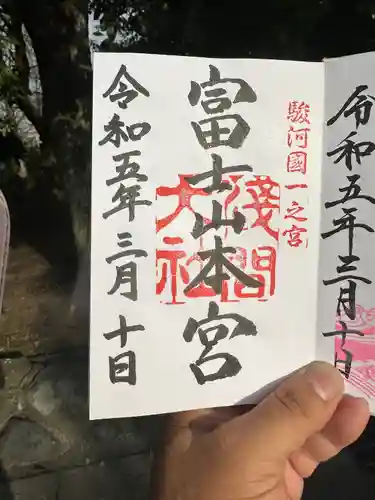 令和五年三月十日
駿河國一之宮
富士山本宮
淺間
大社
令和五年三月十日